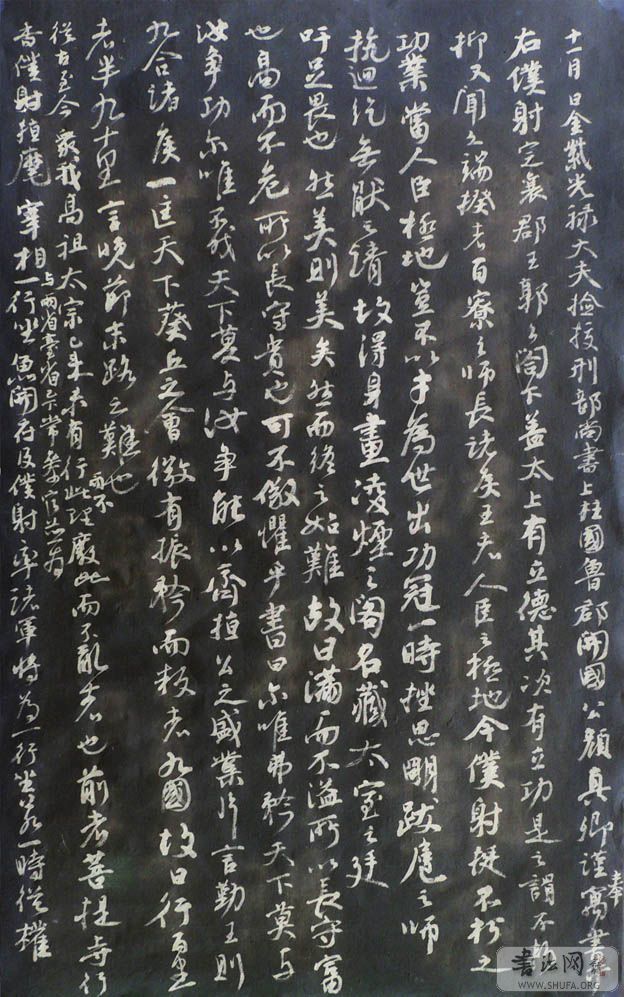 十一月日金紫光祿大夫檢挍刑部尚書上柱國魯郡開國公顏真卿謹寓書
奉
右僕射定襄郡王郭公閣下蓋太上有立德其次有立功是之謂不朽
抑又聞之端揆者百寮之師長諸侯王者人臣之極地今僕射挺不朽之
功業當人臣極地豈不以才為世出功冠一時挫思明跋扈之師
抗迴紇無猒之請故得身畫凌煙之閣名藏太室之廷
吁足畏也然美則美矣然而終之始難故曰滿而不溢所以長守富
也高而不危所以長守貴也可不儆懼乎書曰尔唯弗矜天下莫與
汝爭功尔唯不伐天下莫與汝爭能以齊桓公之盛業片言勤王則
九合諸侯一匡天下葵丘之會微有振矜而叛者九國故曰行百里
者半九十里言晚節末路之難也
從古至今暨我高祖太宗已來未有行此理而不
廢此而不亂者也前者菩提寺行
香僕射指麾宰相
與兩省臺省已下常參官並為
一行坐魚開府及僕射率諸軍將為一行坐若一時從權
書法网
WWW.SHUFA.ORG